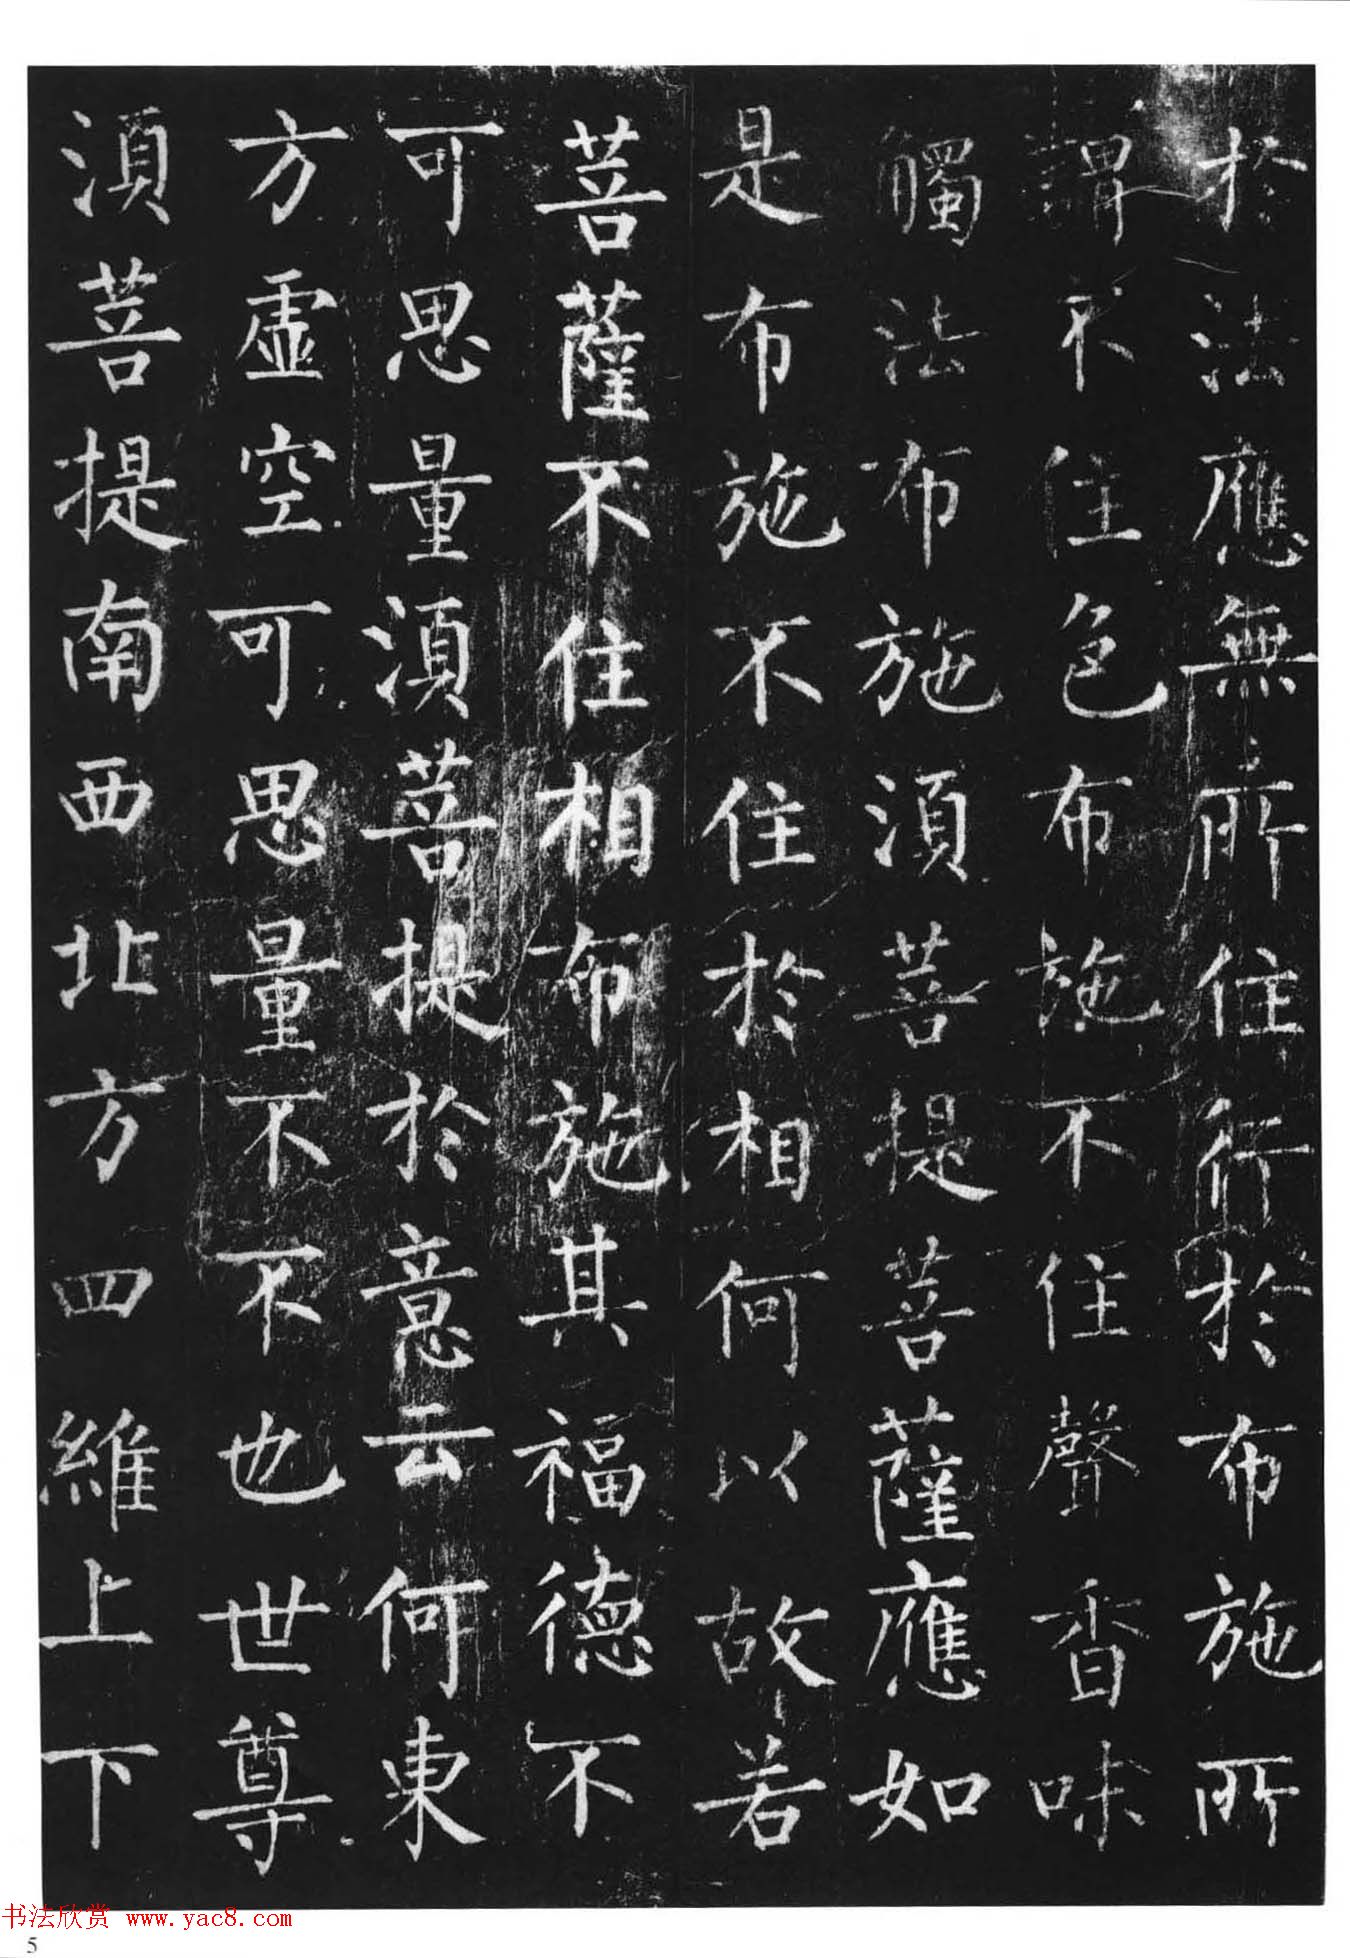 於法應無所住行於布施所
謂不住色布施不住聲香味
觸法布施須菩提菩薩應如
是布施不住於相何以故若
菩薩不住相布施其福德不
可思量須菩提於意云何東
方虛空可思量不不也世尊
須菩提南西北方四維上下
书法欣赏 www.yac8.com
5